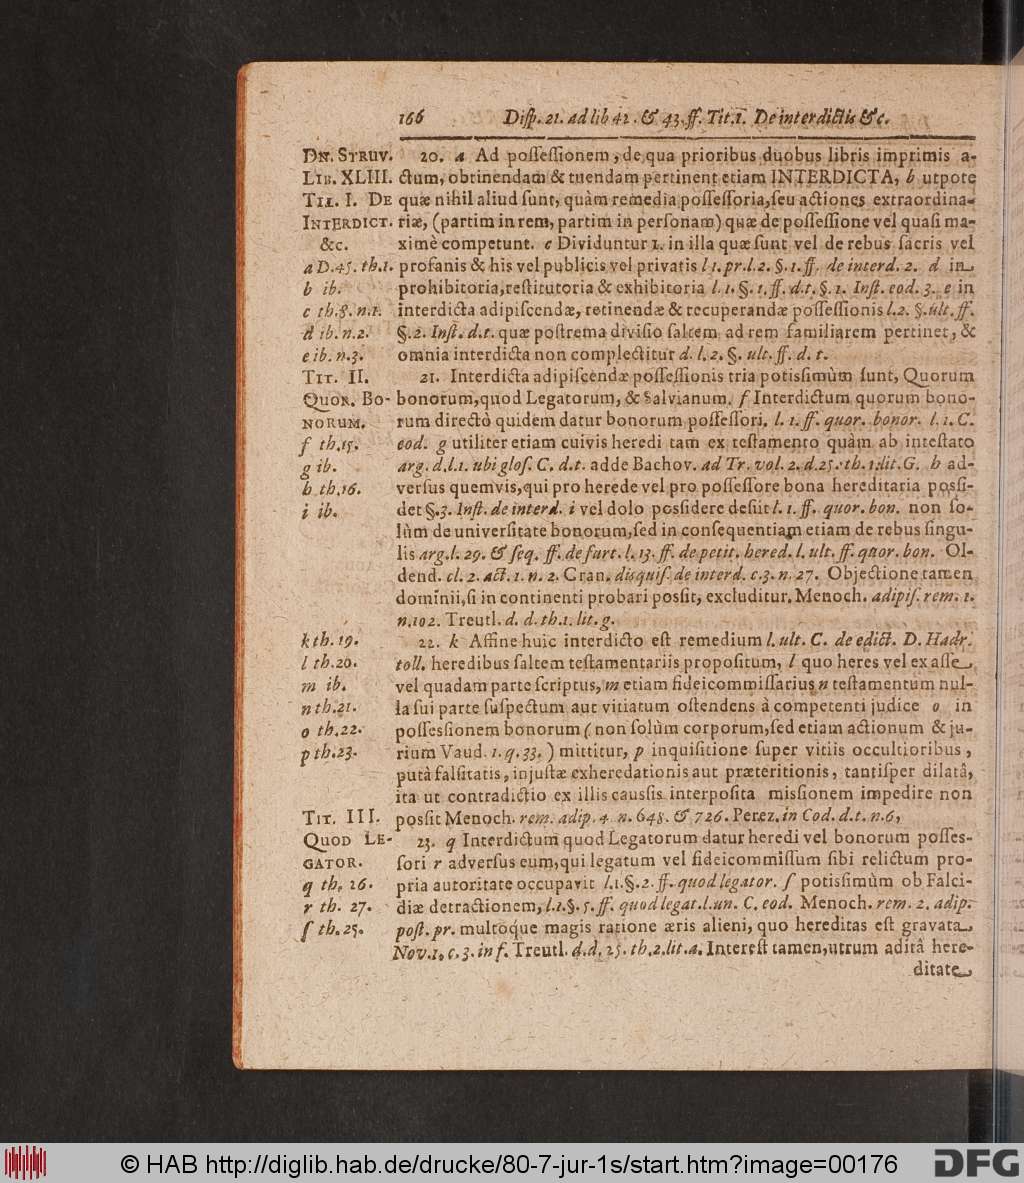 166 Diſp. 21. ad lib 42. & 43. ff. Tit. 1. De interdictis &c.
Dn. Struv.
Lib. XLIII.
Tit. I. De
Interdict.
&c.
a D.45. th.1.
b ib.
c th.8. n.1.
d ib. n.2.
e ib. n.3.
Tit. II.
Quor. Bo-
norum.
f th.15.
g ib.
h th.16.
i ib.
k th. 19.
l th.20.
m ib.
n th.21.
o th.22.
p th.23.
Tit. III.
Quod Le-
gator.
q th. 26.
r th. 27.
ſ th. 25.
20. a Ad poſſeſſionem, de qua prioribus duobus libris imprimis a-
ctum, obtinendam & tuendam pertinent etiam INTERDICTA, b utpote
quæ nihil aliud ſunt, quàm remedia poſſeſſoria, ſeu actiones extraordina-
riæ, (partim in rem, partim in perſonam) quæ de poſſeſſione vel quaſi ma-
ximè competunt. c Dividuntur 1. in illa quæ ſunt vel de rebus ſacris vel
profanis & his vel publicis vel privatis l 1. pr. l. 2. §. 1. ff. de interd. 2. d in
prohibitoria, reſtitutoria & exhibitoria l. 1. §. 1. ff. d. t. §. 1. Inſt. eod. 3. e in
interdicta adipiſcendæ, retinendæ & recuperandæ poſſeſſionis l. 2. §. ult. ff.
§. 2. Inſt. d. t. quæ poſtrema diviſio ſaltem ad rem familiarem pertinet, &
omnia interdicta non complectitur d. l. 2. §. ult. ff. d. t.
21. Interdicta adipiſcendæ poſſeſſionis tria potisſimùm ſunt, Quorum
bonorum, quod Legatorum, & Salvianum. f Interdictum quorum bono-
rum directò quidem datur bonorum poſſeſſori. l. 1. ff. quor. bonor. l. 1. C.
eod. g utiliter etiam cuivis heredi tam ex teſtamento quàm ab inteſtato
arg. d. l. 1. ubi gloſ. C. d. t. adde Bachov. ad Tr. vol. 2. d. 25. th. 1. lit. G. h ad-
verſus quemvis, qui pro herede vel pro poſſeſſore bona hereditaria posſi-
det §. 3. Inſt. de interd. i vel dolo posſidere deſiit l. 1. ff. quor. bon. non ſo-
lùm de univerſitate bonorum, ſed in conſequentiam etiam de rebus ſingu-
lis arg. l. 29. & ſeq. ff. de furt. l. 13. ff. de petit. hered. l. ult. ff. quor. bon. Ol-
dend. cl. 2. act. 1. n. 2. Gran. disquiſ. de interd. c. 3. n. 27. Objectione tamen
dominii, ſi in continenti probari posſit, excluditur. Menoch. adipiſ. rem. 1.
n. 102. Treutl. d. d. th. 1. lit. g.
22. k Affine huic interdicto eſt remedium l. ult. C. de edict. D. Hadr.
toll. heredibus ſaltem teſtamentariis propoſitum, l quo heres vel ex aſſe
vel quadam parte ſcriptus, m etiam fideicommiſſarius n teſtamentum nul-
la ſui parte ſuſpectum aut vitiatum oſtendens â competenti judice o in
poſſesſionem bonorum (non ſolùm corporum, ſed etiam actionum & ju-
rium Vaud. 1. q. 33.) mittitur, p inquiſitione ſuper vitiis occultioribus,
putà falſitatis, injuſtæ exheredationis aut præteritionis, tantiſper dilatâ,
ita ut contradictio ex illis causſis interpoſita misſionem impedire non
posſit Menoch. rem. adip. 4. n. 648. & 726. Perez. in Cod. d. t. n. 6,
23. q Interdictum quod Legatorum datur heredi vel bonorum poſſes-
ſori r adverſus eum, qui legatum vel fideicommiſſum ſibi relictum pro-
pria autoritate occupavit l. 1. §. 2. ff. quod legator. ſ potisſimùm ob Falci-
diæ detractionem, l. 1. §. 5. ff. quod legat. l. un. C. eod. Menoch. rem. 2. adip.
poſt. pr. multòque magis ratione æris alieni, quo hereditas eſt gravata
Nov. 1. c. 3. in f. Treutl. d. d. 25. th. 2. lit. a. Intereſt tamen, utrum aditâ here-
ditate
© HAB http://diglib.hab.de/drucke/80-7-jur-1s/start.htm?image=00176
DFG